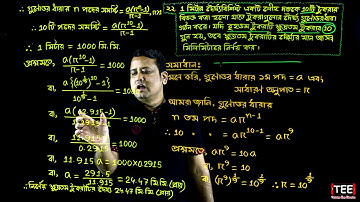 ∴ গুণোত্তর ধারার n পদের সমষ্টি = a(rⁿ-1)/r-1, r>1
∴ 10টি পদের সমষ্টি = a(r¹⁰-1)/r-1
∴ 1 মিটার = 1000 মি.মি.
প্রশ্নমতে, a(r¹⁰-1)/r-1 = 1000
বা, = 1000
বা, a(12.915-1) = 1000
বা, 11.915 a = 1000×0.2915
বা, a = 291.5/11.915
∴ নির্ণেয় ক্ষুদ্রতম টুকরাটির দৈর্ঘ্য 24.47 মি.মি (প্রায়)
22. 1 মিটার দৈর্ঘ্যবিশিষ্ট একটি 10টি টুকরায়
বিভক্ত করা হলো যাতে টুকরাগুলোর দৈর্ঘ্য গুণোত্তর ধারা
গঠন করে। যদি বৃহত্তম টুকরাটি ক্ষুদ্রতম টুকরার 10
গুণ হয়, তবে ক্ষুদ্রতম টুকরাটির দৈর্ঘ্যের মান আসন্ন
মিলিমিটারে নির্ণয় কর।
সমাধানঃ
মনে করি, গুণোত্তর ধারার ১ম পদ = a এবং
সাধারণ অনুপাত = r
আমরা জানি, গুণোত্তর ধারার
n তম পদ = arⁿ⁻¹
∴ 10 " " = ar¹⁰⁻¹ = ar⁹
প্রশ্নমতে, ar⁹ = 10a
বা, r⁹ = 10
বা, (r⁹)^(1/9) = 10^(1/9) ∴ r = 10^(1/9)
TEE